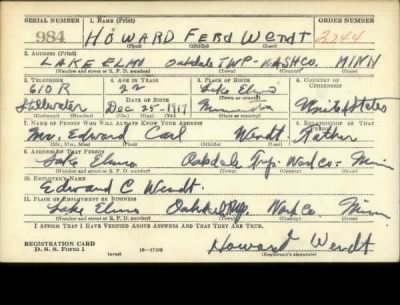 SERIAL NUMBER 1. NAME (Print) ORDER NUMBER
984 HOWARD FERD WENDT 3244
(First) (Middle) (Last)
2. ADDRESS (Print)
LAKE ELMO Oakdale TWP-WASHCO. MINN
(Number and street or R. F. D. number) (Town) (County) (State)
3. TELEPHONE 4. AGE IN YEARS 5. PLACE OF BIRTH 6. COUNTRY OF CITIZENSHIP
610 R 22 Lake Elmo
(Town or county)
Stillwater DATE OF BIRTH
Dec 25-1917 Minnesota United States
(Exchange) (Number) (Mo.) (Day) (Yr.) (State or country)
7. NAME OF PERSON WHO WILL ALWAYS KNOW YOUR ADDRESS 8. RELATIONSHIP OF THAT PERSON
Mr. Edward Carl Wendt Father
(Mr., Mrs., Miss) (First) (Middle) (Last)
9. ADDRESS OF THAT PERSON
Lake Elmo Oakdale Twp. Wash Co- Minn
(Number and street or R. F. D. number) (Town) (County) (State)
10. EMPLOYER'S NAME
Edward C Wendt.
11. PLACE OF EMPLOYMENT OR BUSINESS
Lake Elmo Oakdale Twp. Wash Co. Minn
(Number and street or R. F. D. number) (Town) (County) (State)
I AFFIRM THAT I HAVE VERIFIED ABOVE ANSWERS AND THAT THEY ARE TRUE.
REGISTRATION CARD
D. S. S. Form 1 (over) Howard Wendt
(Registrant's signature)